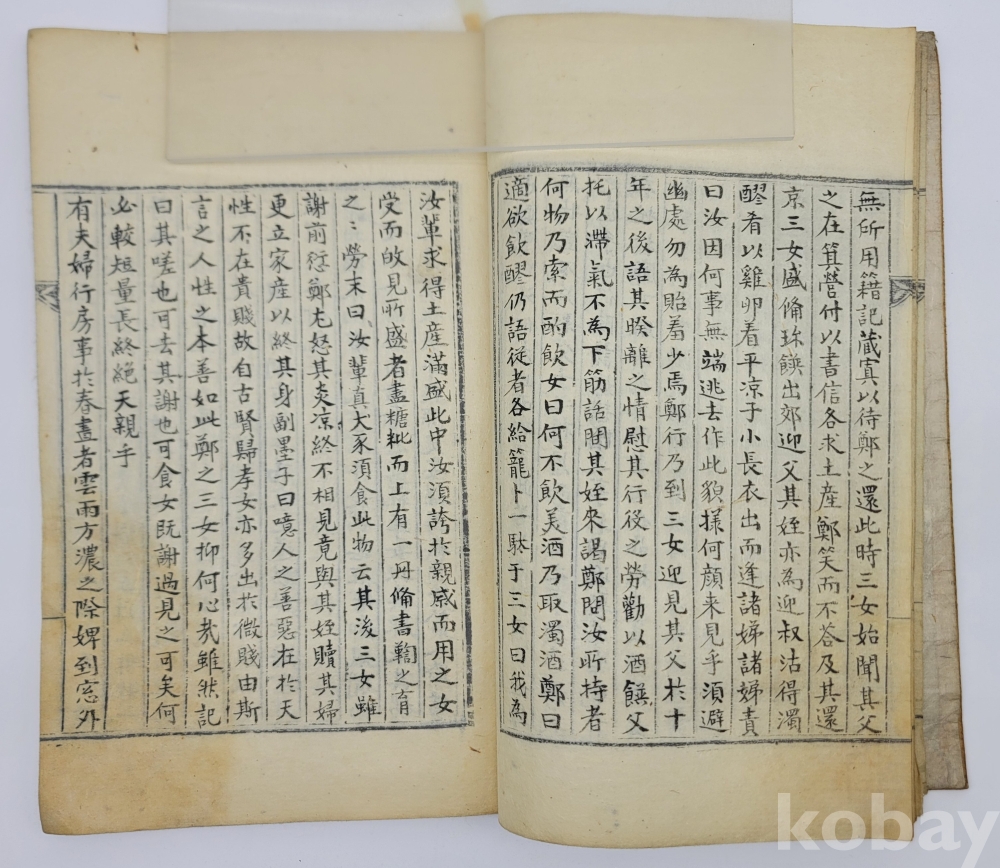 無所用籍記藏寘以待鄭之還此時三女始聞其父
之在箕營付以書信各求土産鄭笑而不答及其還
京三女盛備珎饌出郊迎父其姪亦為迎叔沽得濁
醪肴以雞卵着平凉子小長衣出而逢諸娣諸娣責
曰汝因何事無端逃去作此貌㨾何顔来見乎須避
幽處勿為貽羞少焉鄭行乃到三女迎見其父扵十
年之後語其暌離之情慰其行役之勞勸以酒饌父
托以滯氣不為下筋話閒其姪来謁鄭問汝所持者
何物乃索而酌飲女曰何不飲美酒乃取濁酒鄭曰
適欲飲醪仍語従者各給籠卜一駄于三女曰我為
汝輩求得土産滿盛此中汝須誇扵親戚而用之女
受而啟見所盛者盡糖粃而上有一丹備書鞫之有
之〻勞末曰汝輩真犬豕須食此物云其後三女雖
謝前愆鄭尤怒其炎凉終不相見竟與其姪贖其婦
更立家産以終其身副墨子曰噫人之善惡在扵天
性不在貴賤故自古賢歸孝女亦多出扵微賤由斯
言之人性之本善如此鄭之三女抑何心㢤雖然記
曰其嗟也可去其謝也可食女既謝過見之可矣何
必較短量長終絶天親乎
有夫婦行房事扵春晝者雲雨方濃之際婢到窓外
kobay